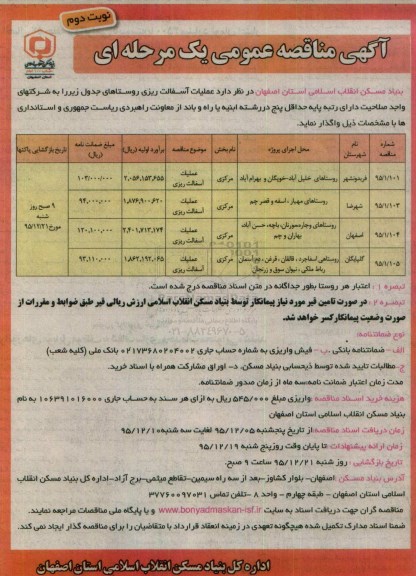 نوبت دوم
آگهی مناقصه عمومی یک مرحله ای
بنیاد مسکن انقلاب اسلامی استان اصفهان در نظر دارد عملیات آسفالت ریزی روستاهای جدول زیررا به شرکتهای
واجد صلاحیت دارای رتبه پایه حداقل پنج دررشته ابنیه یا راه و باند از معاونت راهبردی ریاست جمهوری و استانداری
ها با مشخصات ذیل واگذار نماید.
شماره مناقصه نام شهرستان محل اجرای پروژه نام بخش موضوع مناقصه برآورد اولیه (ریال) مبلغ ضمانت نامه (ریال) تاریخ بازگشایی پاکتها
۹۵/۱/۱۰۱ فریدونشهر روستاهای خلیل آباد-خویگان و بهرام آباد مرکزی عملیات آسفالت ریزی ۲,۰۵۶,۱۵۳,۶۵۵ ۱۰۳/۰۰۰/۰۰۰
۹۵/۱/۱۰۳ شهرضا روستاهای مهیار ، اسفه و قصر چم مرکزی عملیات آسفالت ریزی ۱,۸۷۶,۹۰۰,۶۲۰ ۹۴,۰۰۰,۰۰۰
۹ صبح روز شنبه مورخ ۹۵/۱۲/۲۱
۹۵/۱/۱۰۴ اصفهان روستاهای وجاره‌موزنان، باچه، حسن آباد، بهاران و چم مرکزی عملیات آسفالت ریزی ۲,۴۰۱,۷۱۳,۱۷۴ ۱۲۰,۱۰۰,۰۰۰
۹۵/۱/۱۰۵ گلپایگان روستاهای اسفاجرد، قالقان، قرغن، رباط ملکی ، نیوان سوق و زرنجان مرکزی عملیات آسفالت ریزی ۱,۸۶۲,۱۹۲,۰۶۵ ۹۳,۱۱۰,۰۰۰
تبصره ۱ : اعتبار هر روستا بطور جداگانه در متن اسناد مناقصه درج شده است.
تبصره ۲ : در صورت تامین قیر مورد نیاز پیمانکار توسط بنیاد مسکن انقلاب اسلامی ارزش ریالی قیر طبق ضوابط و مقررات از
صورت وضعیت پیمانکار کسر خواهد شد.
نوع ضمانتنامه:
الف- ضمانتنامه بانکی .ب- فیش واریزی به شماره حساب جاری ۰۲۱۷۳۶۸۰۲۰۴۰۰۲ بانک ملی (کلیه شعب)
ج- مطالبات تایید شده توسط ذیحسابی بنیاد مسکن. د- اوراق مشارکت همراه با اسناد خرید.
مدت زمان اعتبار ضمانت نامه:سه ماه از زمان صدور ضمانتنامه.
هزینه خرید اسناد مناقصه :واریزی مبلغ ۵۴۵/۰۰۰ ریال به ازای هر سند به حساب جاری ۱۰۶۳۹۱۰۱۶۰۰۰ به نام
بنیاد مسکن انقلاب اسلامی استان اصفهان
زمان دریافت اسناد مناقصه:از تاریخ پنجشنبه ۹۵/۱۲/۰۵ لغایت سه شنبه ۹۵/۱۲/۱۰
زمان ارائه پیشنهادات :تا پایان وقت روزپنج شنبه ۹۵/۱۲/۱۹
تاریخ بازگشایی : روز شنبه ۹۵/۱۲/۲۱ ساعت ۹ صبح.
آدرس بنیاد مسکن :اصفهان- بلوار کشاورز-بعد از سه راه سیمین-تقاطع میثمی-برج آزاد-اداره کل بنیاد مسکن انقلاب
اسلامی استان اصفهان - طبقه چهارم - واحد ۸ -تلفن تماس ۳۷۷۶۰۰۹۷۰۳۱
مناقصه گران جهت دریافت اسناد به سایت www.bonyadmaskan-isf.ir و یا پایگاه ملی مناقصات مراجعه نمایند.
ضمنا اسناد مدارک تکمیل شده هیچگونه تعهدی در زمینه انعقاد قرارداد با متقاضیان را برای مناقصه گذار ایجاد نمی کند.
اداره کل بنیاد مسکن انقلاب اسلامی استان اصفهان